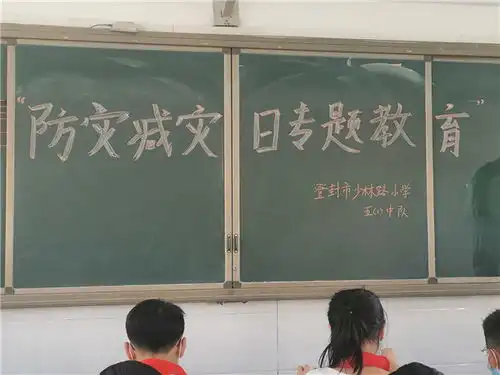 “防灾减灾日专题教育”
登封市少林路小学
五(1)中队